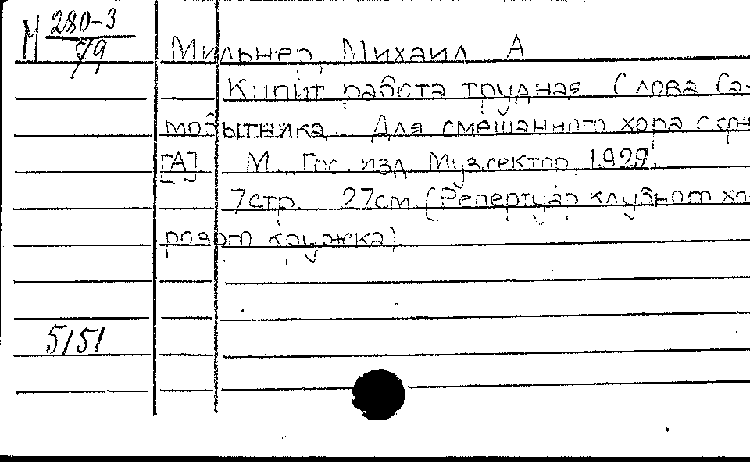 М 280-3
79
Мильнер, Михаил А
Кипит работа трудная. Слова Са-
мобытника. Для смешанного хора с фп
[А] М. Гос. изд. Муз.сектор, 1929.
7стр. 27см. (Репертуар клубного хо-
рового кружка)
5151